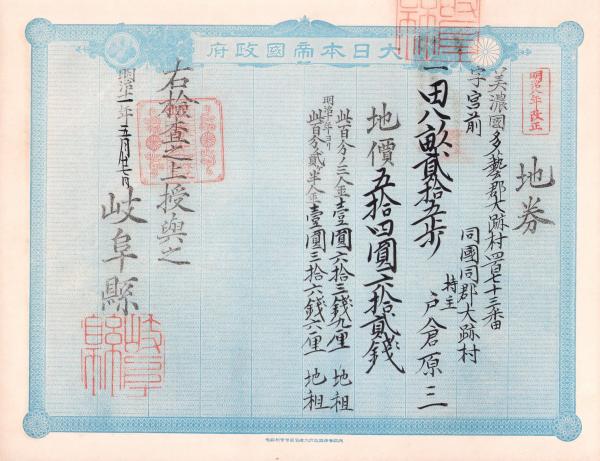 大日本帝國政府
明治八年改正
地券
美濃國多藝郡大跡村四百七十三番
字宮前
同國同郡大跡村
持主 戸倉原三
一田八畝貳拾五歩
地價五拾四圓六拾貳錢
此百分ノ三金壹圓六拾三錢九厘 地租
明治十年ヨリ
此百分貳半金壹圓三拾六錢六厘 地租
右檢査之上授與之
明治十一年五月廿七日
岐阜縣